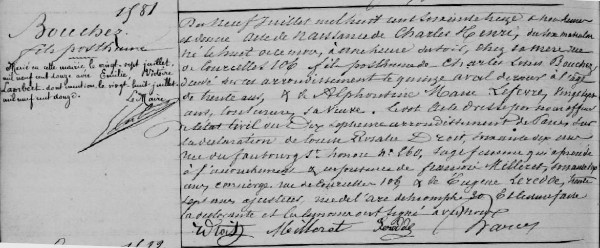 1581
Bouchez
fils posthume
Marié en cette mairie le vingt sept juillet
mil neuf cent douze avec Émilie, Victoire
Lambert. dont mention, le vingt huit juillet
mil neuf cent douze.
Le Maire,
Du neuf juillet mil huit cent soixante treize à neuf heures
et demie Acte de Naissance de Charles Henri, du sexe masculin
né le huit à une heure du soir, chez sa mère rue
de Courcelles 106 fils posthume de Charles Louis Bouchez
décédé en cet arrondissement le quinze avril dernier à l'âge
de trente ans, & de Alphonsine Marie Lefevre, vingt
ans, couturière, sa veuve. L'acte dressé par nous officier
de l'état civil du Dix septième arrondissement de Paris, sur
la déclaration de Louise Rosalie Droit, ans
rue du faubourg St honoré n° 260, sage femme qui a présidé
à l'accouchement & en présence de françois Milleret, soixante
ans, concierge, rue de Courcelles 109 & de Eugène trente
sept ans ajusteur, rue de l'arc de triomphe 30 Et lecture faite
la déclarante et les témoins ont signé avec nous
Droit Milleret
1582